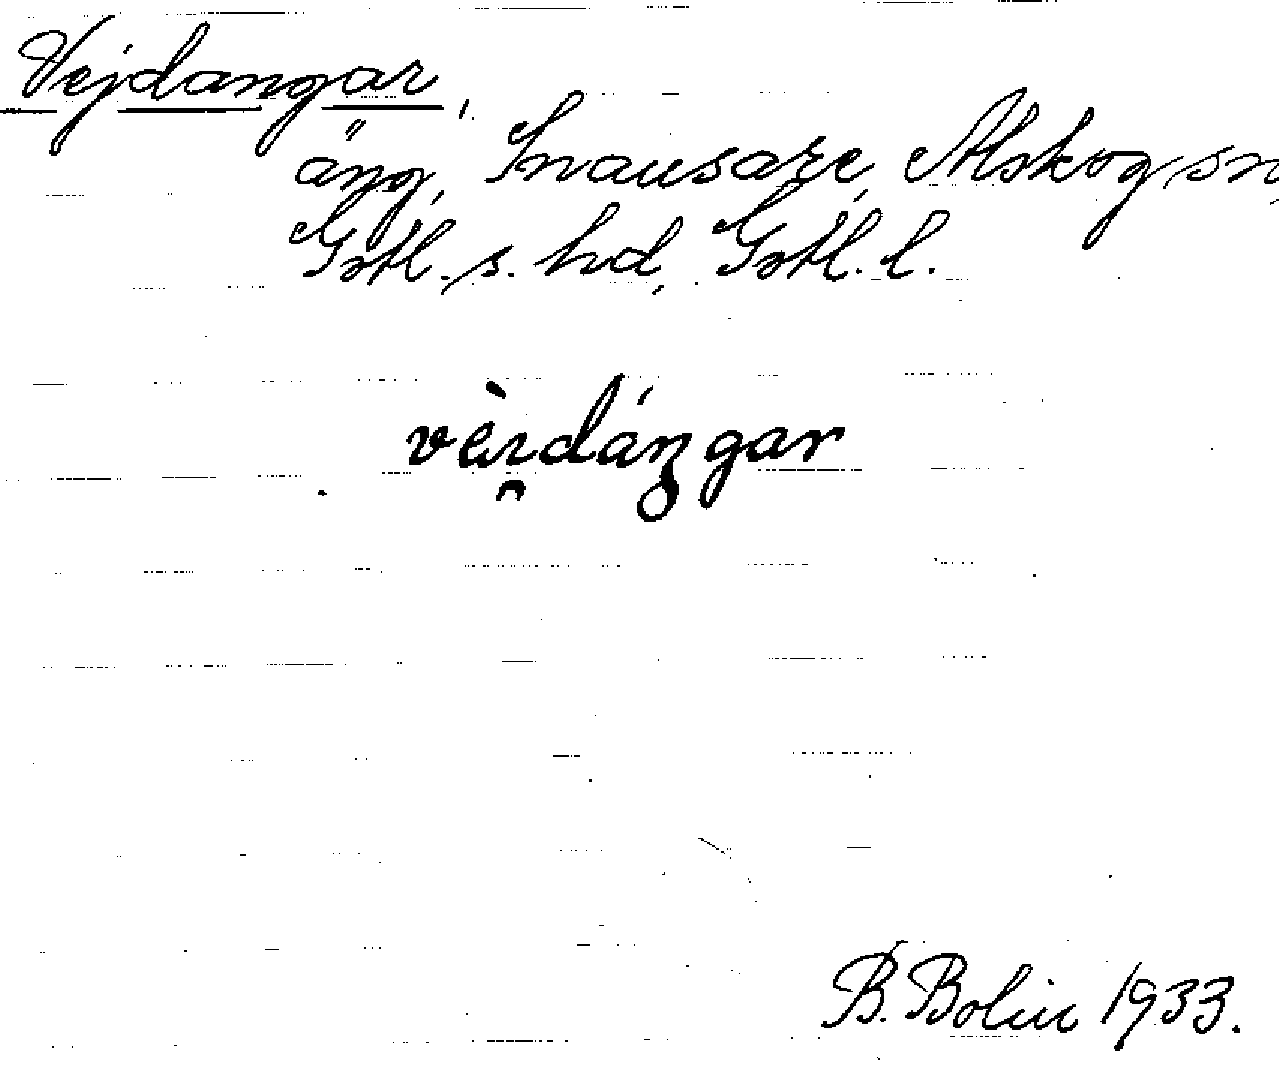 Vejdangar,
äng, Snausare, Alskog sn,
Gotl. s. hd, Gotl. l.
vèi̯dáŋgar
B. Bolin 1933.